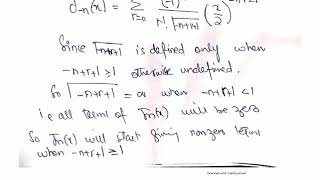 J₋n(x) = ∑ r=0 (-1)ʳ / r! √-n+r+1 (x/2)^-n+2r
Since √-n+r+1 is defined only when
-n+r+1 ≥ 1 otherwise undefined.
So √-n+r+1 = ∞ when -n+r+1 < 1
i.e all terms of J-n(x) will be zero
So J-n(x) will start giving nonzero terms
when -n+r+1 ≥ 1